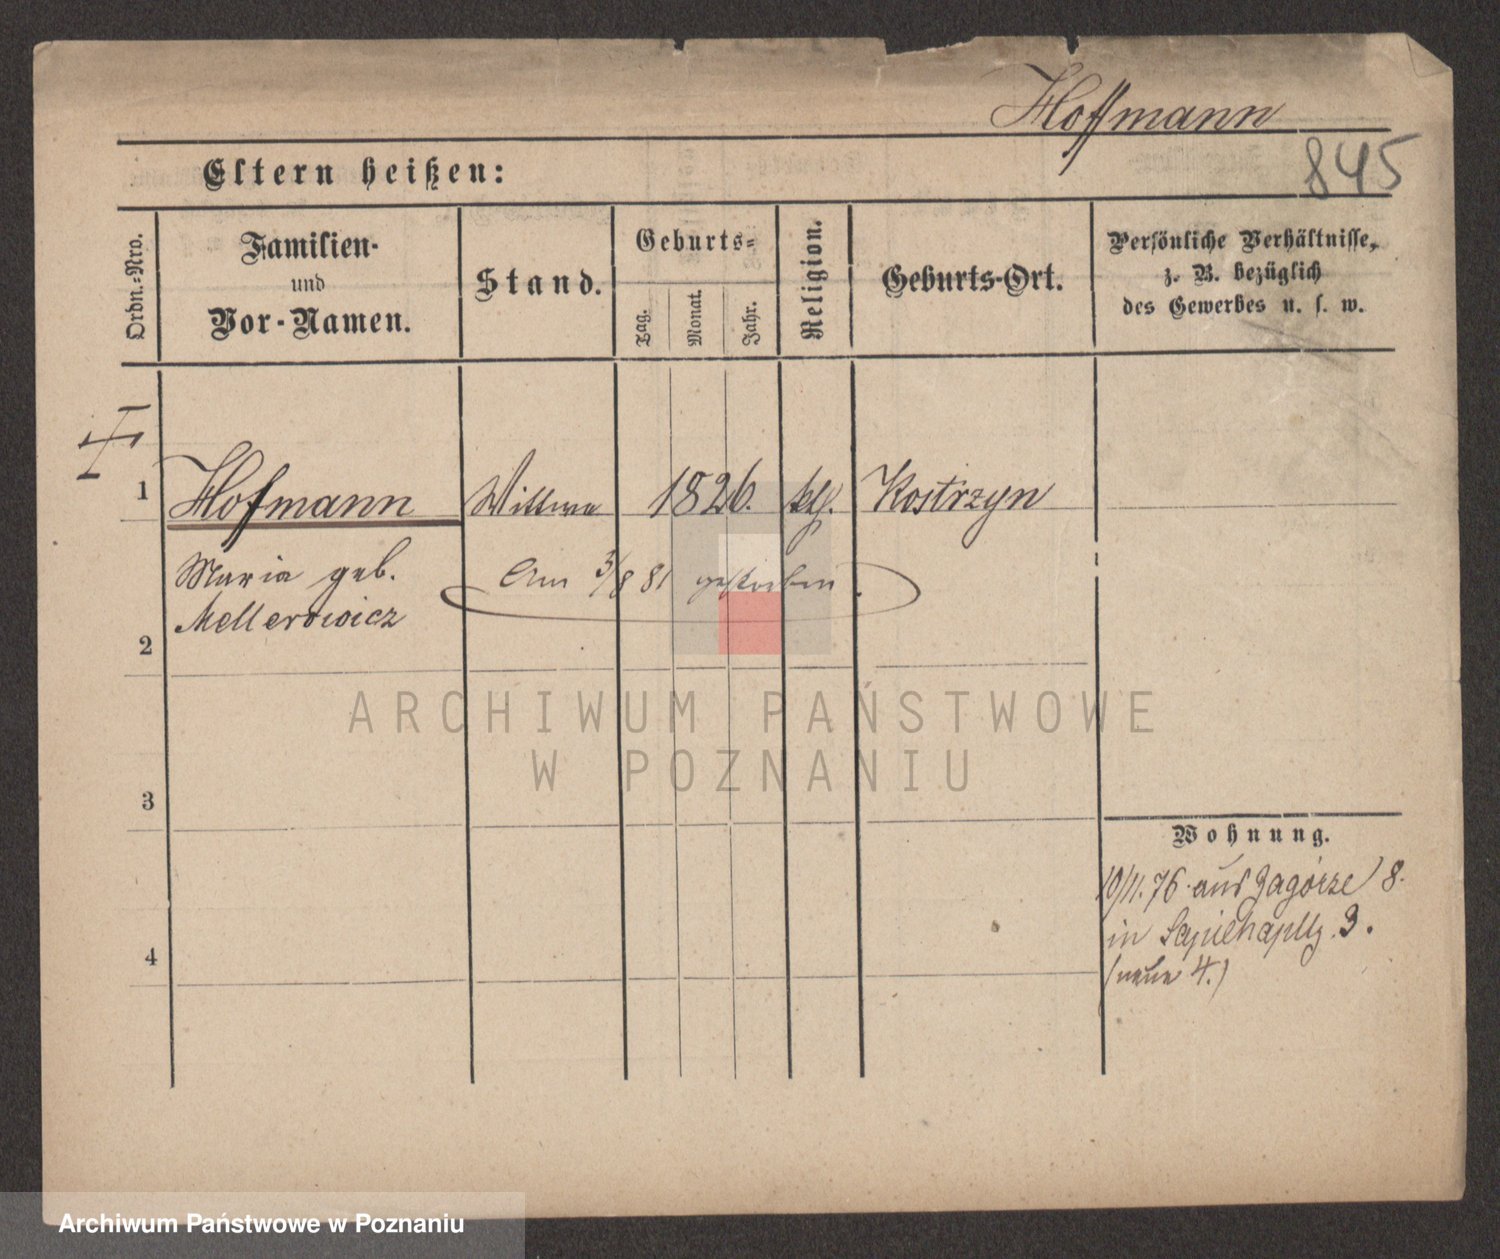 Hoffmann
845
Eltern heißen:
Ordn.-Nro.
Familien-
und
Vor-Namen.
Stand.
Geburts-
Tag.
Monat.
Jahr.
Religion.
Geburts-Ort.
Persönliche Verhältnisse,
z. B. bezüglich
des Gewerbes u. s. w.
1
Hofmann Wittwe 1826. ktl. Kostrzyn
Maria geb.
Am 3/8 81 gestorben.
Mellerowicz
2
3
4
Wohnung.
10/11.76. aus Zagórze 8.
in Sapiehapltz. 3.
(neue 4.)
ARCHIWUM PAŃSTWOWE
W POZNANIU
Archiwum Państwowe w Poznaniu